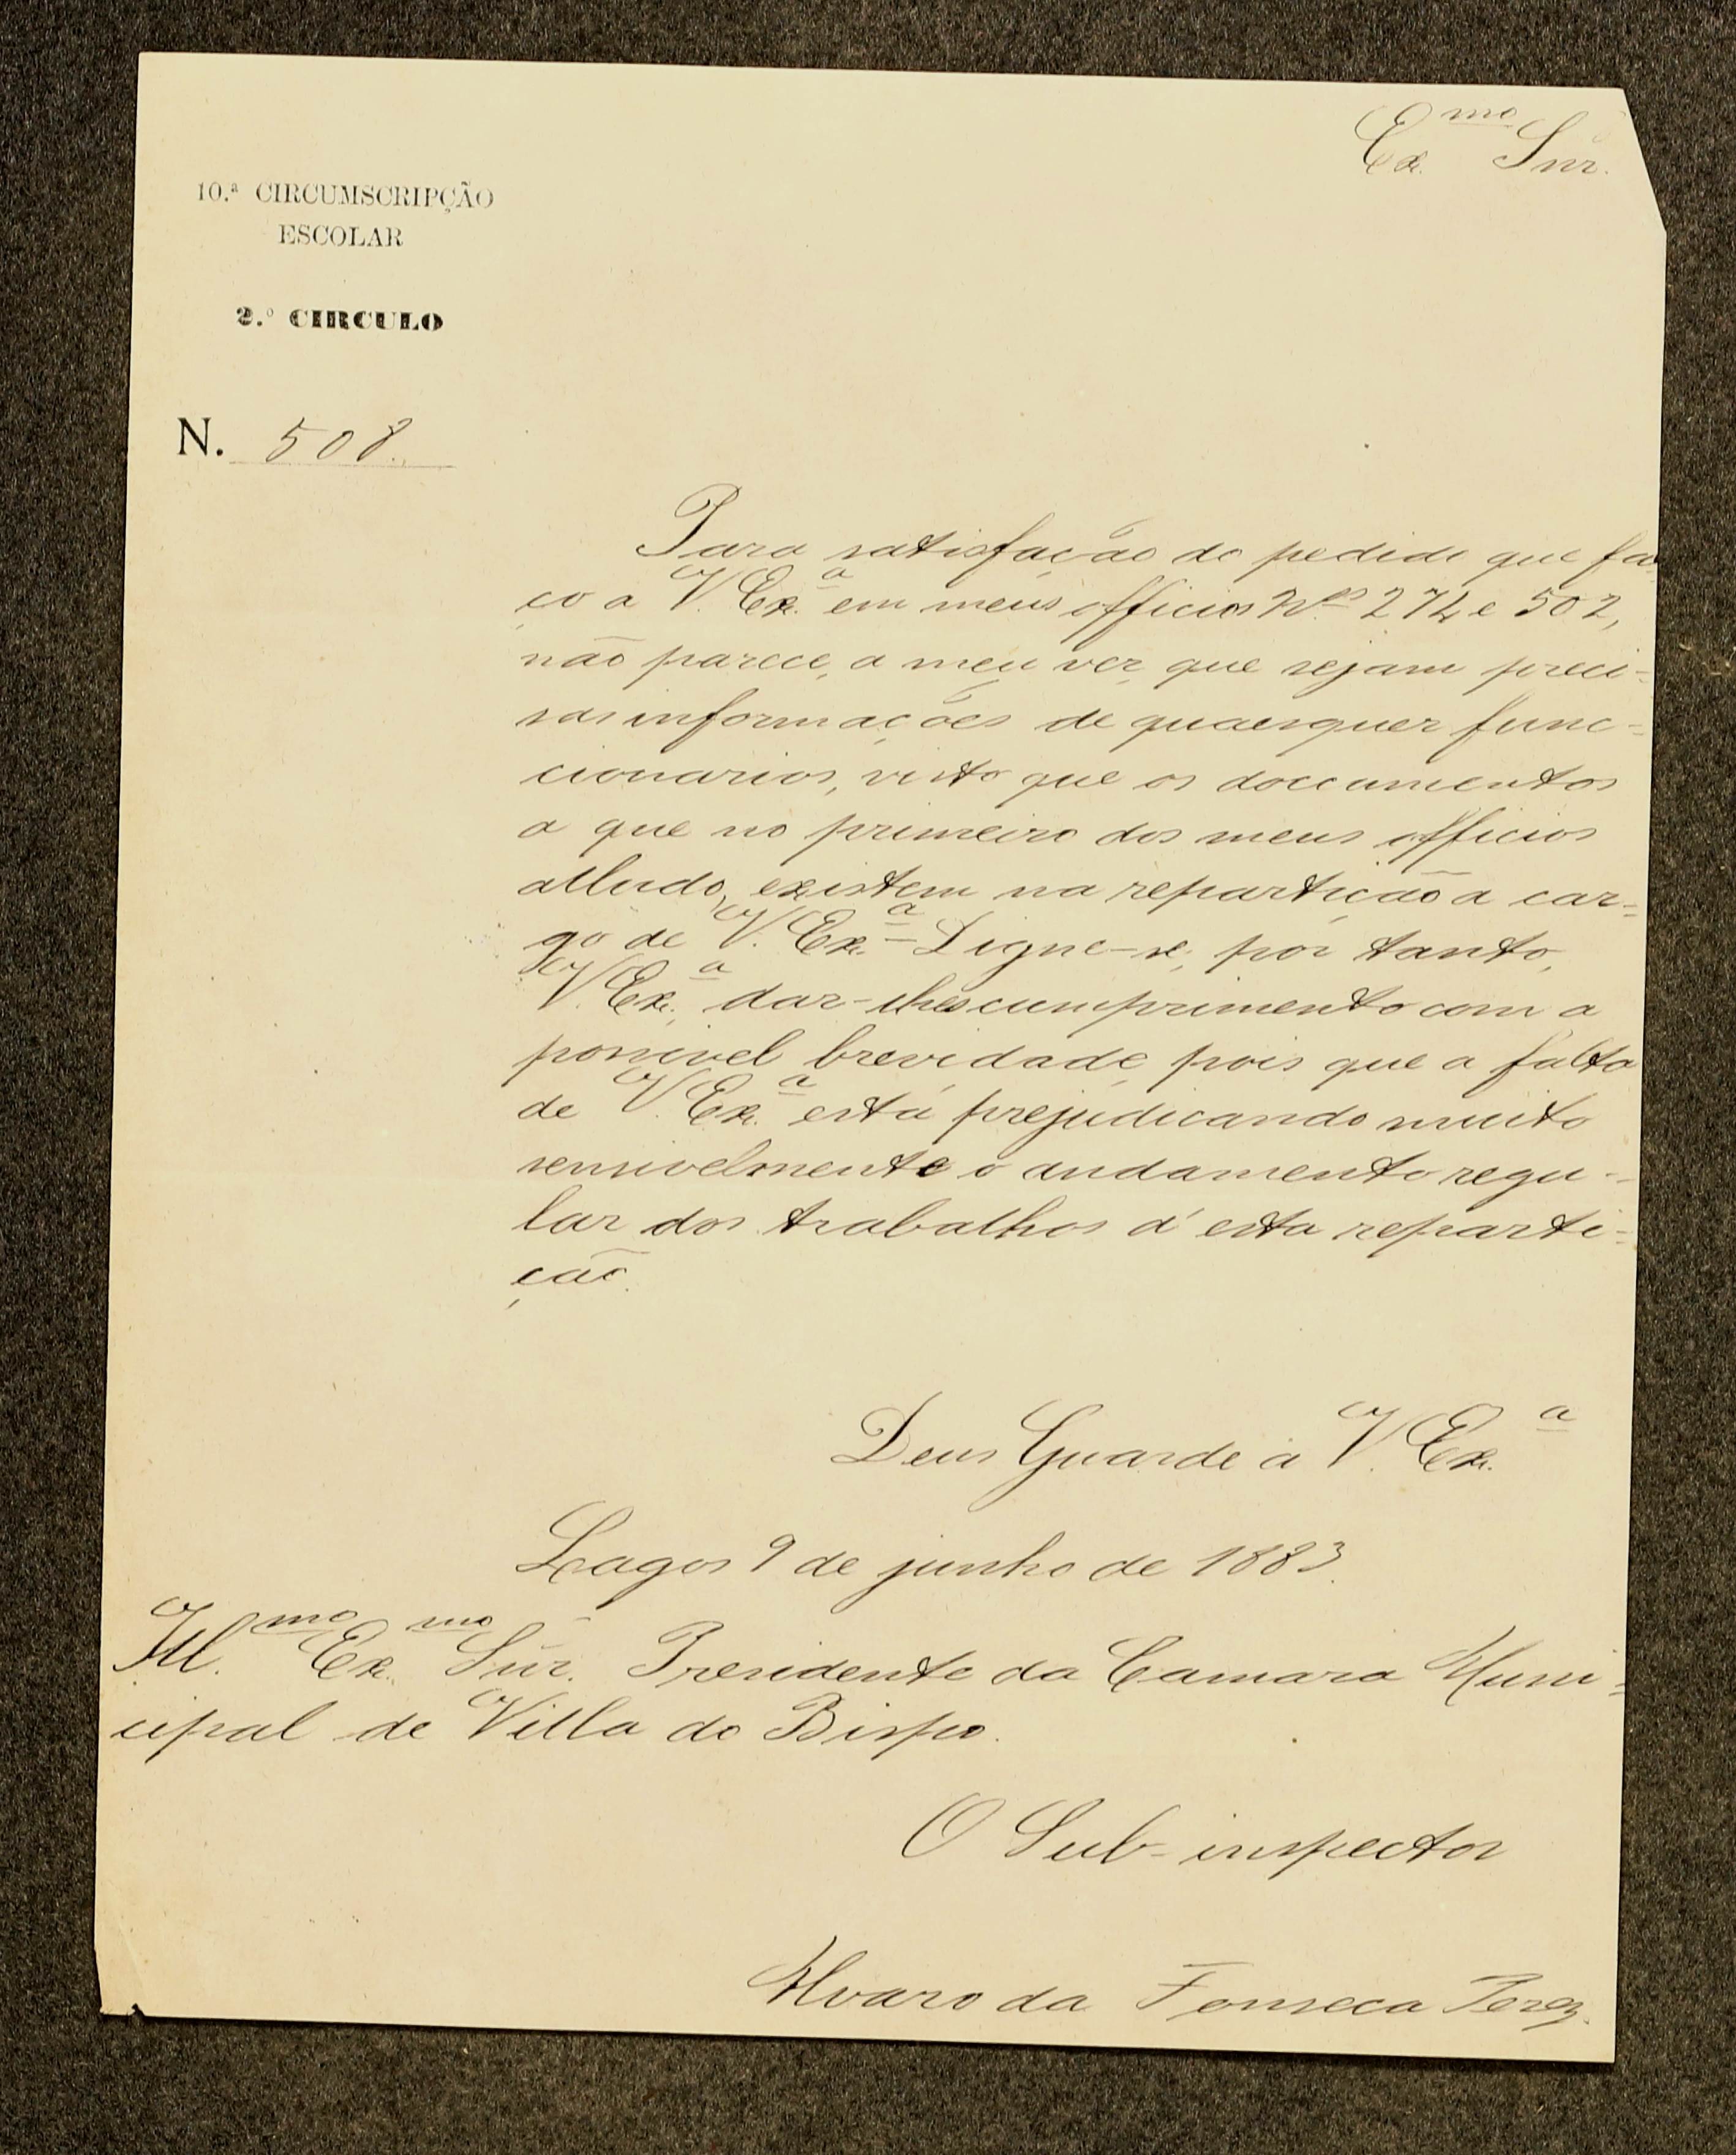 Ex.mo Snr.
10.ª CIRCUMSCRIPÇÃO
ESCOLAR
2.º CIRCULO
N. 508.
Para satisfação do pedido que fa-
ço a V. Ex.ª em meus officios Nos 274 e 502,
não parece, a meu ver, que sejam preci-
sas informações de quaesquer func-
cionarios, visto que os documentos
a que no primeiro dos meus officios
alludo, existem na repartição a car-
go de V. Ex.ª - Digne-se, por tanto,
V. Ex.ª, dar-lhes cumprimento com a
possivel brevidade, pois que a falta
de V. Ex.ª está prejudicando muito
sensivelmente o andamento regu-
lar dos trabalhos d'esta reparti-
ção.
Deus Guarde a V. Ex.ª
Lagos 9 de junho de 1883.
Ill.mo Ex.mo Snr. Presidente da Camara Muni-
cipal de Villa do Bispo.
O Sub-inspector
Alvaro da Fonseca Perez.